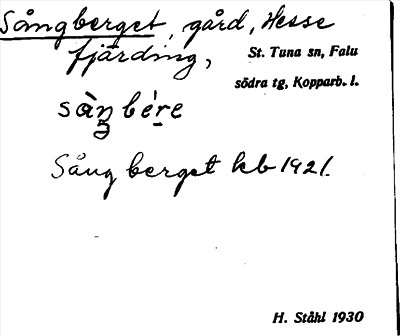 Sångberget, gård, Hesse
fjärding,
St. Tuna sn, Falu
södra tg, Kopparb. l.
sàŋbére
Sångberget kb 1921.
H. Ståhl 1930